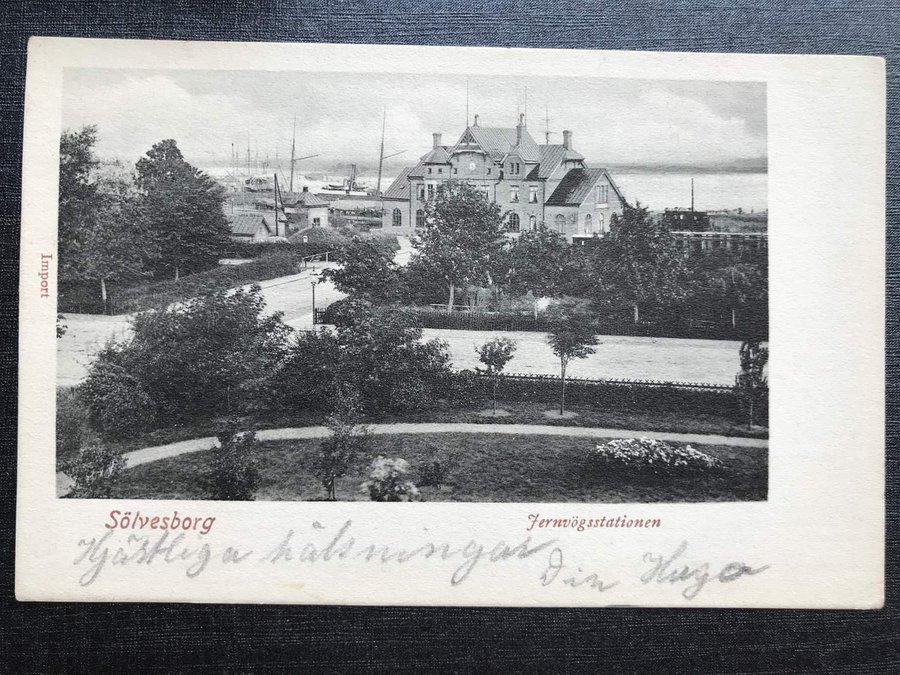 Import
Sölvesborg
Jernvögsstationen
Hjärtliga hälsningar Din Hugo